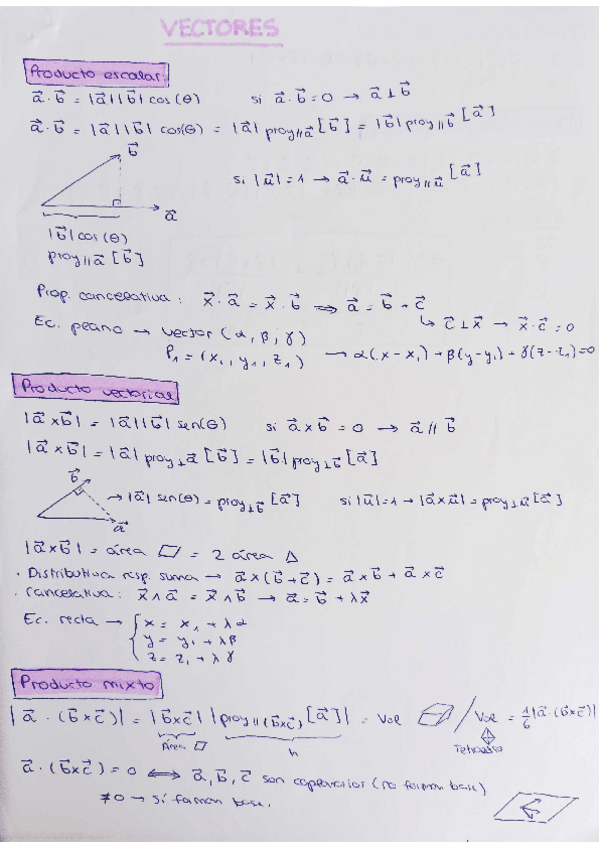 VECTORES
Producto escalar
a⃗ · b⃗ = |a⃗| |b⃗| cos (θ) si a⃗ · b⃗ = 0 → a⃗ ⊥ b⃗
a⃗ · b⃗ = |a⃗| |b⃗| cos(θ) = |a⃗| proy∥a⃗ [b⃗] = |b⃗| proy∥b⃗ [a⃗]
b⃗
si |u⃗| = 1 → a⃗ · u⃗ = proy∥u⃗ [a⃗]
a⃗
|b⃗| cos (θ)
proy∥a⃗ [b⃗]
Prop. cancelativa: x⃗ · a⃗ = x⃗ · b⃗ ⟹ a⃗ = b⃗ + c⃗
↳ c⃗ ⊥ x⃗ → x⃗ · c⃗ = 0
Ec. plano → vector (α, β, γ)
P₁ = (x₁, y₁, z₁) → α(x - x₁) + β(y - y₁) + γ(z - z₁) = 0
Producto vectorial
|a⃗ × b⃗| = |a⃗| |b⃗| sen(θ) si a⃗ × b⃗ = 0 → a⃗ ∥ b⃗
|a⃗ × b⃗| = |a⃗| proy⊥a⃗ [b⃗] = |b⃗| proy⊥b⃗ [a⃗]
b⃗
→ |a⃗| sen(θ) = proy⊥b⃗ [a⃗] si |u⃗| = 1 → |a⃗ × u⃗| = proy⊥u⃗ [a⃗]
a⃗
|a⃗ × b⃗| = área ▱ = 2 área △
· Distributiva resp. suma → a⃗ × (b⃗ + c⃗) = a⃗ × b⃗ + a⃗ × c⃗
· Cancelativa: x⃗ ∧ a⃗ = x⃗ ∧ b⃗ → a⃗ = b⃗ + λx⃗
Ec. recta → { x = x₁ + λα
y = y₁ + λβ
z = z₁ + λγ
Producto mixto
|a⃗ · (b⃗ × c⃗)| = |b⃗ × c⃗| |proy∥(b⃗ × c⃗) [a⃗]| = Vol / Vol = 1/6 |a⃗ · (b⃗ × c⃗)|
Área ▱ h Tetraedro
a⃗ · (b⃗ × c⃗) = 0 ⟺ a⃗, b⃗, c⃗ son coplanarios (no forman base)
≠ 0 → sí forman base.